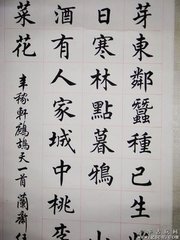 芽東鄰蠶種已生
日寒林點暮鴉
酒有人家城中桃李
菜花
辛稼軒鷓鴣天一首蘭齋